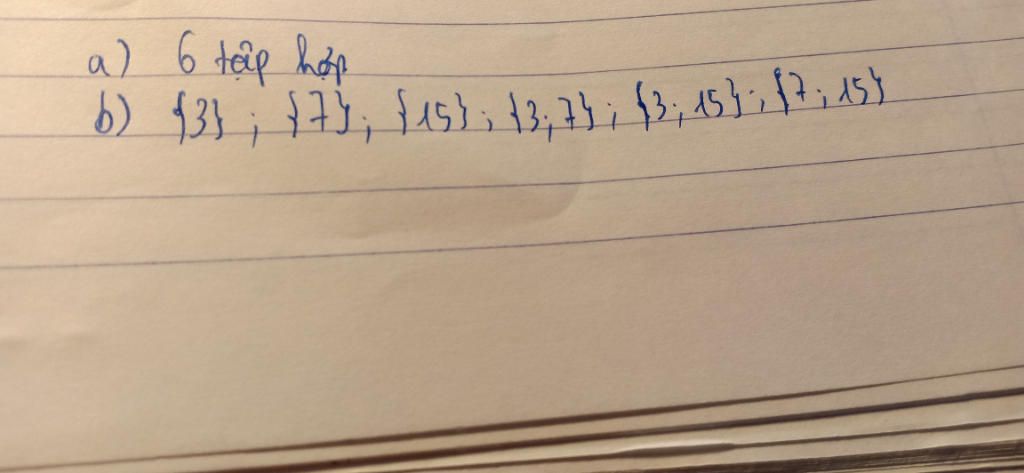 a) 6 tập hợp
b) {3} ; {7} ; {15} ; {3; 7} ; {3; 15} ; {7; 15}